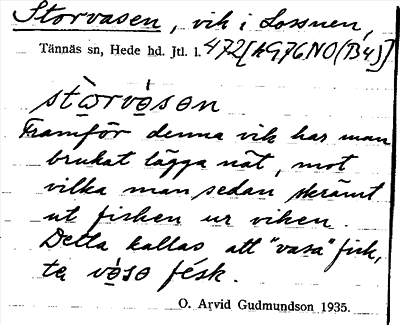 Storvasen, vik i Lossnen,
Tännäs sn, Hede hd. Jtl. l. 472[AG76NO(B4)]
stɷ̀rvə́sən
Framför denna vik har man
brukat lägga nät, mot
vilka man sedan skrämt
ut fisken ur viken.
Detta kallas att "vasa" fisk,
tə və́sə fésk.
O. Arvid Gudmundson 1935.